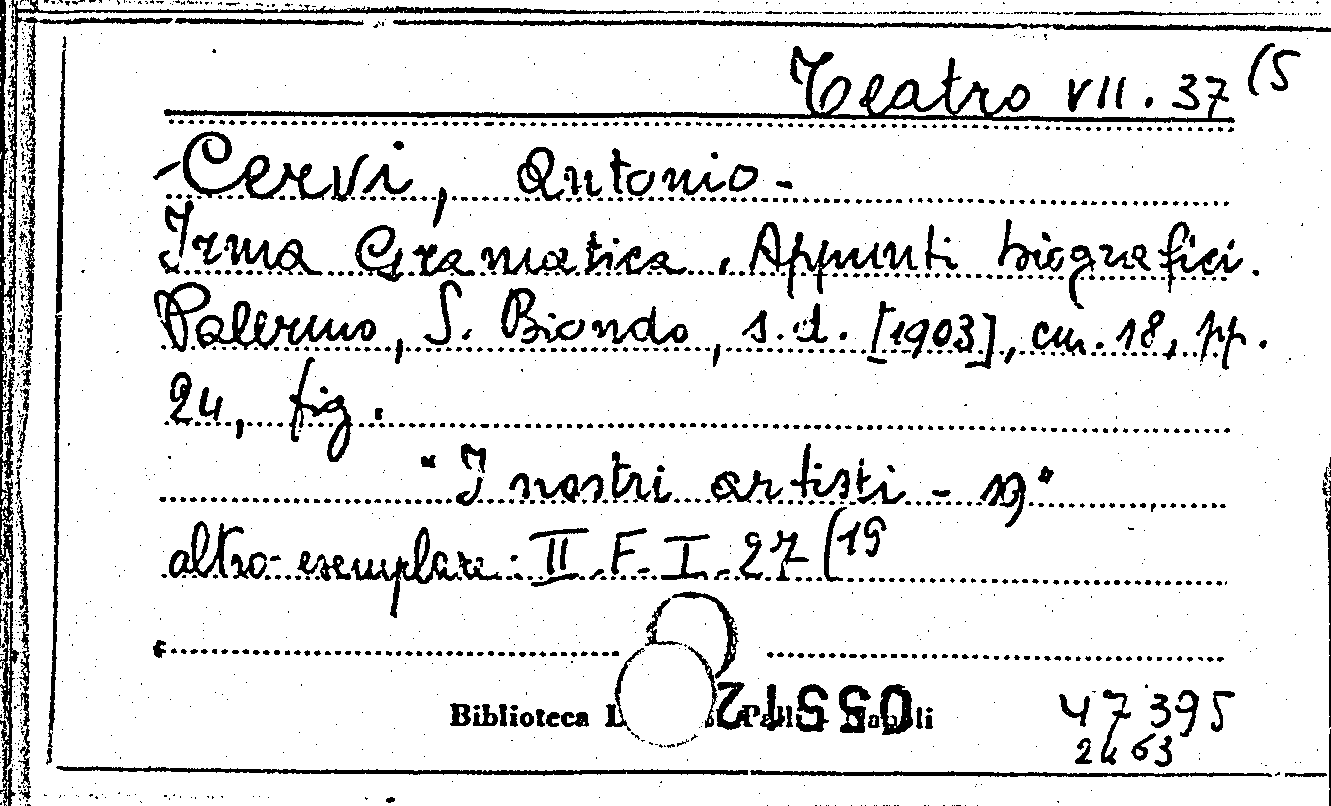 Teatro VII. 37 (5
Cervi, Antonio -
Irma Gramatica. Appunti biografici.
Palermo, S. Biondo, s.d. [1903], cm. 18, pp.
24, fig.
"I nostri artisti -
altro esemplare: II. F. I. 27 (19
Biblioteca
47395
2463